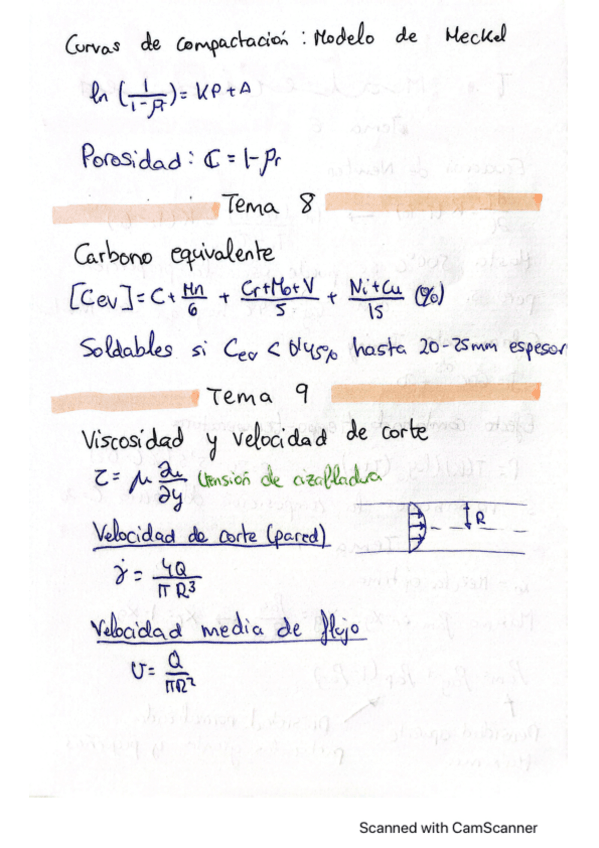 Curvas de compactación: Modelo de Meckel
ln (1/(1-ρr)) = KP + A
Porosidad: C = 1-ρr
Tema 8
Carbono equivalente
[Cev] = C + Mn/6 + (Cr+Mo+V)/5 + (Ni+Cu)/15 (%)
Soldables si Cev < 0'45% hasta 20-25mm espesor
Tema 9
Viscosidad y velocidad de corte
τ = μ ∂u/∂y tensión de cizalladura
Velocidad de corte (pared)
R
γ̇ = 4Q/πR³
Velocidad media de flujo
U = Q/πR²
Scanned with CamScanner